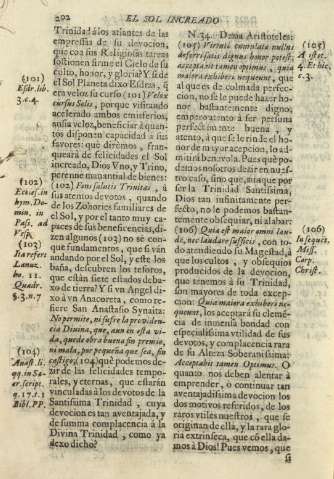 202 EL SOL INCREADO
Trinidad! á los atlantes de las
empressas de su devocion,
que con sus Religiosas tareas
sostienen firme el Cielo de su
culto, honor, y gloria! Y si de
el Sol Planeta dixo Esdras, q̃
era veloz su curso (101) Velox
cursus Solis, porque visitando
acelerado ambos emisferios,
no sea veloz, beneficiar à quantos
disponen capacidad à sus
favores: què dirèmos, franqueará
de felicidades el Sol
increado, Dios Uno, y Trino,
perenne manantial de bienes:
(102) Fons salutis Trinitas, á
sus atentos devotos, quando
de los Zohories familiares de
el Sol, y por el tanto muy capaces
de sus beneficencias, dizen
algunos (103) no sè con
què fundamentos, que si van
andando por el Sol, y este los
baña, descubren los tesoros,
que están siete estados debaxo
de tierra? Y si un Angel dixo
à un Anacoreta, como refiere
San Anastasio Synaita:
No permite, ni sufre la providencia
Divina, que, aun en esta vida,
quede obra buena sin premio,
ni mala, por pequeña que sea, sin
castigo; (104) què podemos dezar
de las felicidades temporales,
y eternas, que estarán
vinculadas à los devotos de la
Santissima Trinidad, cuya
devocion es tan aventajada, y
de summa complacencia à la
Divina Trinidad, como ya
dexo dicho?
(101)
Esdr. lib.
3. c. 4.
(102)
(103)
(104)
N. 34. Dezia Aristoteles:
(105) Virtuti cumulatæ nullus
defert satis dignus honor potest;
acceptabit tamen optimus, quia
maiora exhiberi nequeunt, que
al que es de colmada perfeccion,
no se le puede hazer honor
bastantemente digno;
empero atento à ser persona
perfectamente buena, y
atento, à que se le rinde el honor
de mayor acepcion, lo admitirà
benevola. Pues què podemos
nosotros dezir en nuestro
caso, sino que, mas que por
ser la Trinidad Santissima,
Dios tan infinitamente perfecto,
no le podemos bastantemente
obsequiar, ni alabar:
(106) Quia est maior omni laude,
nec laudare sufficis, con todo
atendiendo su Magestad, à
que los cultos, y obsequios
producidos de la devocion,
que tenemos à su Trinidad,
son mayores de toda excepcion:
Quia maiora exhiberi nequeunt,
los aceptará su clemencia
de immensa bondad con
especialissima utilidad de sus
devotos, y complacencia rara
de su Alteza Soberanissima:
Acceptabit tamen Optimus. O
quanto nos deben alentar à
emprender, ò continuar tan
aventajadissima devocion los
dos motivos referidos, de los
raros utiles nuestros, que se
originan de ella, y la rara gloria
extrinseca, que cõ ella damos
à Dios! Pues vemos, que
si
(105)
c. 3.
(106)
In sequẽt.
Miss.
Corp.
Christ.